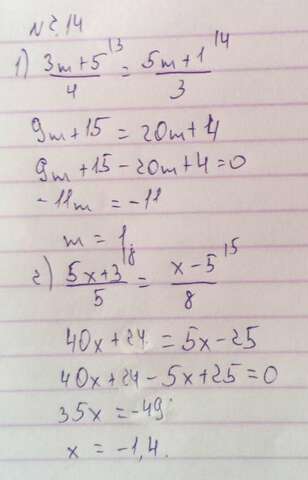 № 2.14
1) (3m+5)/4 ^13 = (5m+1)/3 ^14
9m+15 = 20m+4
9m+15-20m+4=0
-11m = -11
m = 1
2) (5x+3)/5 ^18 = (x-5)/8 ^15
40x+24 = 5x-25
40x+24-5x+25=0
35x = -49
x = -1,4.